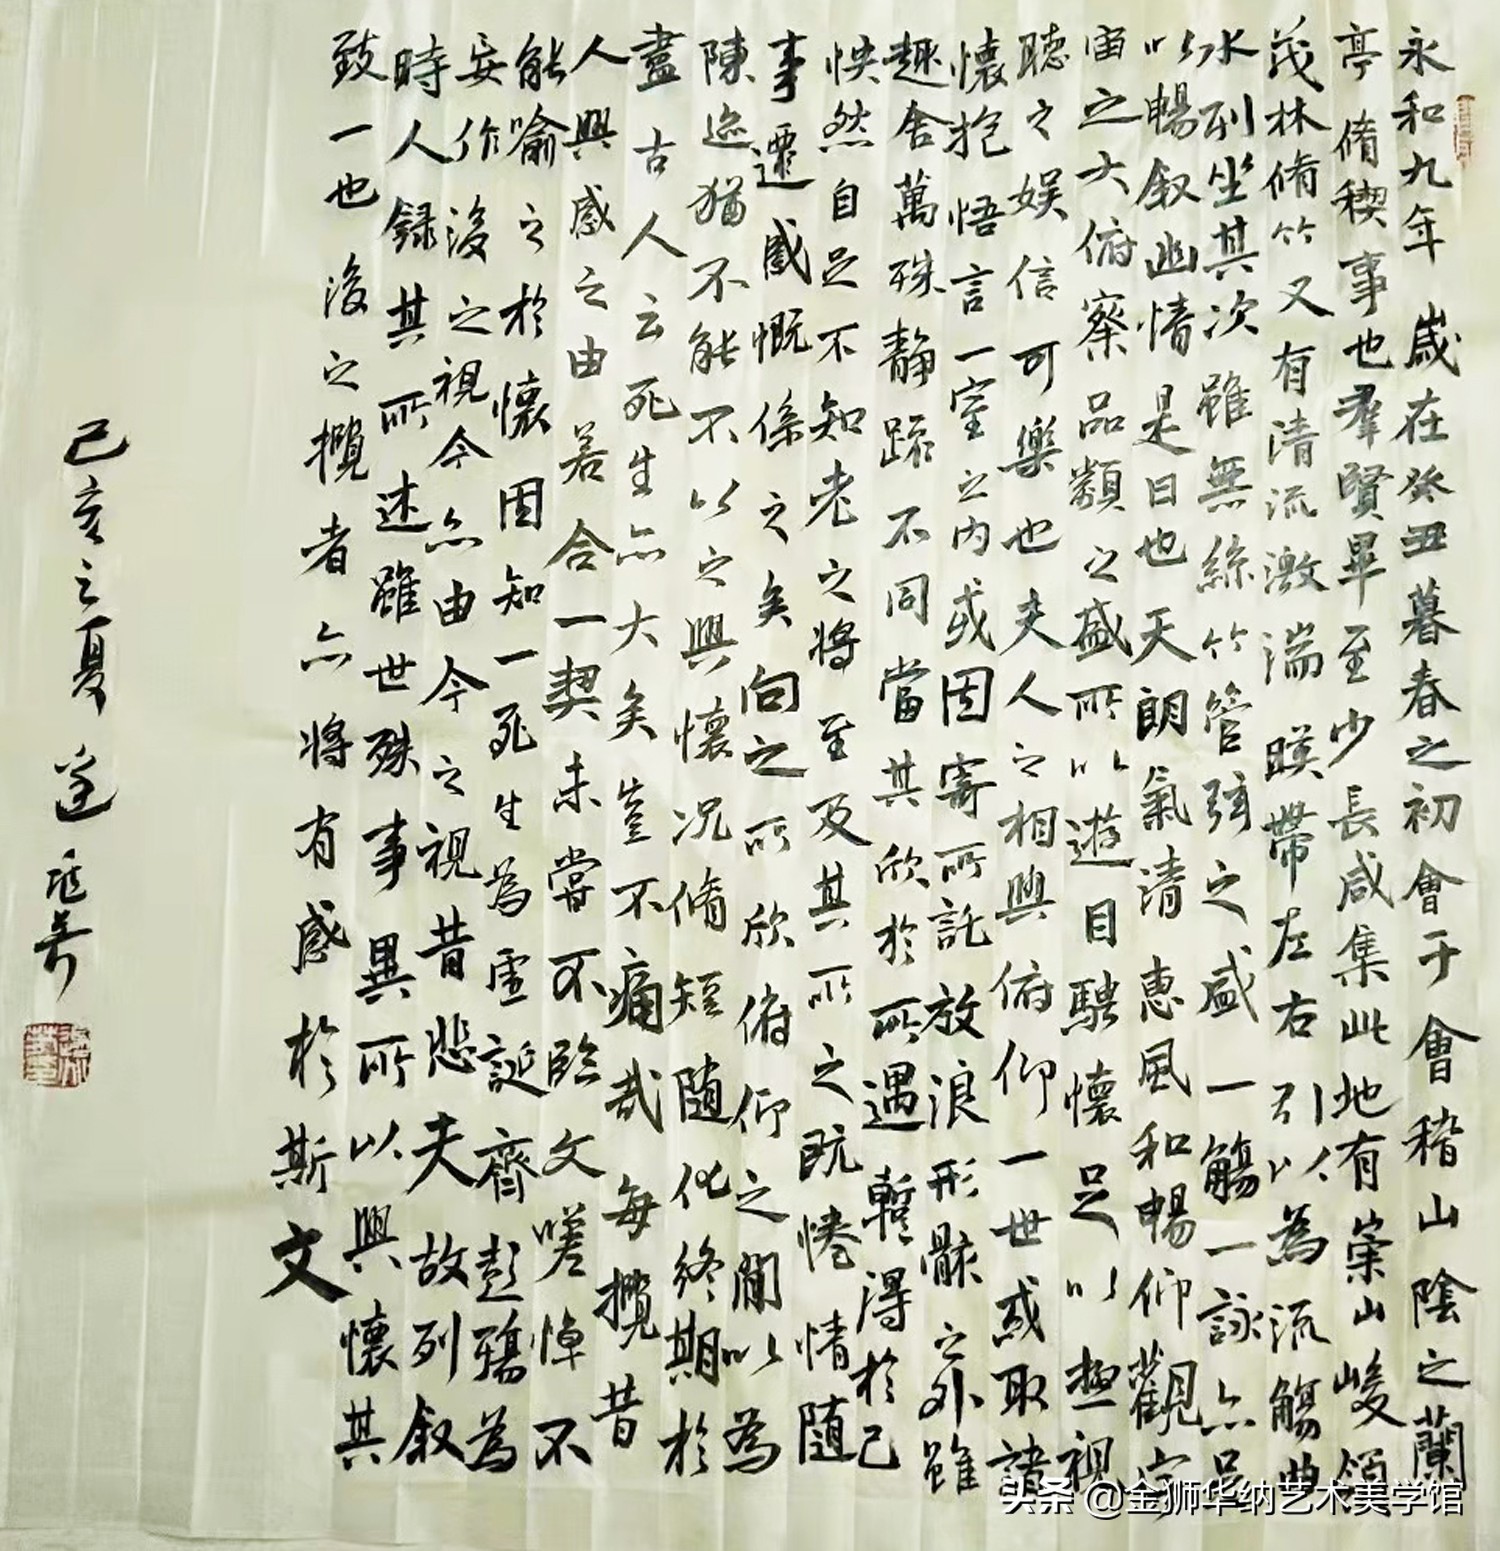 永和九年歲在癸丑暮春之初會于會稽山陰之蘭
亭脩稧事也羣賢畢至少長咸集此地有崇山峻領
茂林脩竹又有清流激湍暎帶左右引以為流觴曲
水列坐其次雖無絲竹管弦之盛一觴一詠亦足
以暢叙幽情是日也天朗氣清惠風和暢仰觀宇
宙之大俯察品類之盛所以遊目騁懷足以極視
聽之娛信可樂也夫人之相與俯仰一世或取諸
懷抱悟言一室之内或因寄所託放浪形骸之外雖
趣舍萬殊静躁不同當其欣於所遇蹔得於己
怏然自足不知老之將至及其所之既惓情随
事遷感慨係之矣向之所欣俯仰之間以為
陳迹猶不能不以之興懷况脩短随化終期於
盡古人云死生亦大矣豈不痛哉每攬昔
人興感之由若合一契未嘗不臨文嗟悼不
能喻之於懷固知一死生為虛誕齊彭殤為
妄作後之視今亦由今之視昔悲夫故列叙
時人録其所述雖世殊事異所以興懷其
致一也後之攬者亦將有感於斯文
己亥之夏
头条 @金狮华纳艺术美学馆